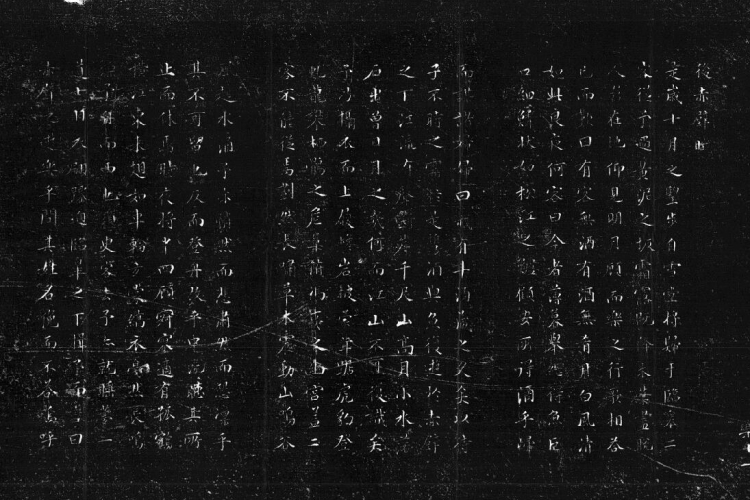 後赤壁賦
是歲十月之望步自雪堂將歸于臨皋二
客從予過黃泥之坂霜露既降木葉盡脫
人影在地仰見明月顧而樂之行歌相答
已而歎曰有客無酒有酒無肴月白風清
如此良夜何客曰今者薄暮舉網得魚巨
口細鱗狀如松江之鱸顧安所得酒乎歸
而謀諸婦婦曰我有斗酒藏之久矣以待
子不時之需於是攜酒與魚復遊於赤壁
之下江流有聲斷岸千尺山高月小水落
石出曾日月之幾何而江山不可復識矣
予乃攝衣而上履巉岩披蒙茸踞虎豹登
虬龍攀棲鶻之危巢俯馮夷之幽宮蓋二
客不能從焉劃然長嘯草木震動山鳴谷
起水涌予亦悄然而悲肅然而恐凜乎
其不可留也反而登舟放乎中流聽其所
止而休焉時夜將半四顧寂寥適有孤鶴
橫江東來翅如車輪玄裳縞衣戛然長鳴
予舟而西也須臾客去予亦就睡夢一
道士羽衣翩躚過臨皋之下揖予而言曰
赤壁之遊樂乎問其姓名俛而不答嗚呼